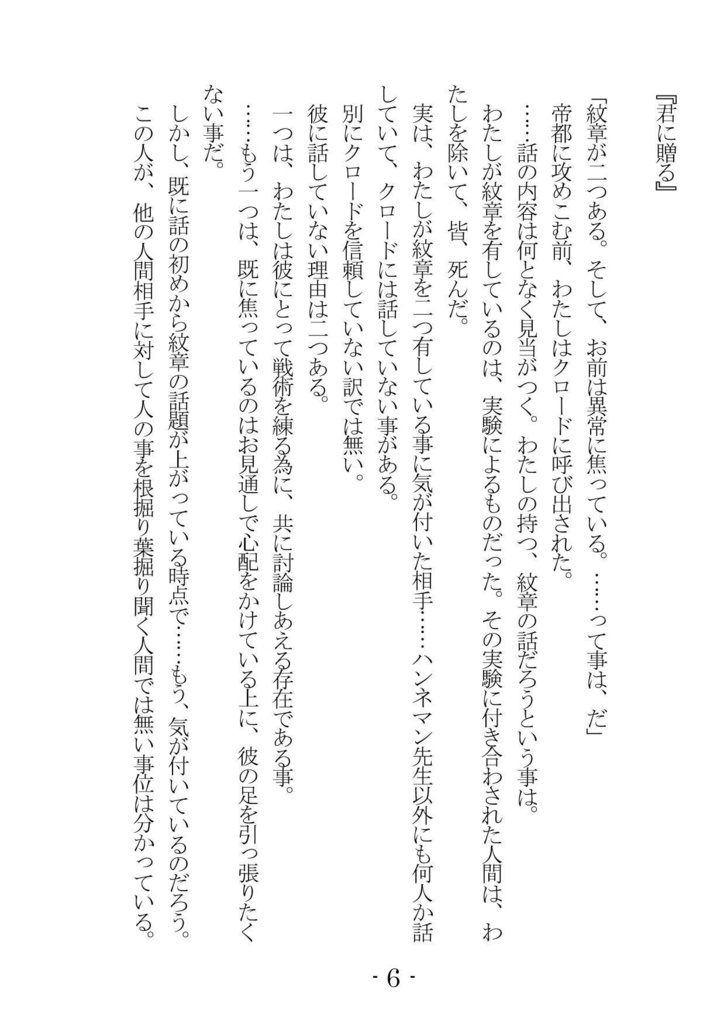 『君に贈る』
「紋章が二つある。そして、お前は異常に焦っている。……って事は、だ」
帝都に攻めこむ前、わたしはクロードに呼び出された。
……話の内容は何となく見当がつく。わたしの持つ、紋章の話だろうという事は。
わたしが紋章を有しているのは、実験によるものだった。その実験に付き合わされた人間は、わ
たしを除いて、皆、死んだ。
実は、わたしが紋章を二つ有している事に気が付いた相手……ハンネマン先生以外にも何人か話
していて、クロードには話していない事がある。
別にクロードを信頼していない訳では無い。
彼に話していない理由は二つある。
一つは、わたしは彼にとって戦術を練る為に、共に討論しあえる存在である事。
……もう一つは、既に焦っているのはお見通しで心配をかけている上に、彼の足を引っ張りたく
ない事だ。
しかし、既に話の初めから紋章の話題が上がっている時点で……もう、気が付いているのだろう。
この人が、他の人間相手に対して人の事を根掘り葉掘り聞く人間では無い事位は分かっている。
- 6 -